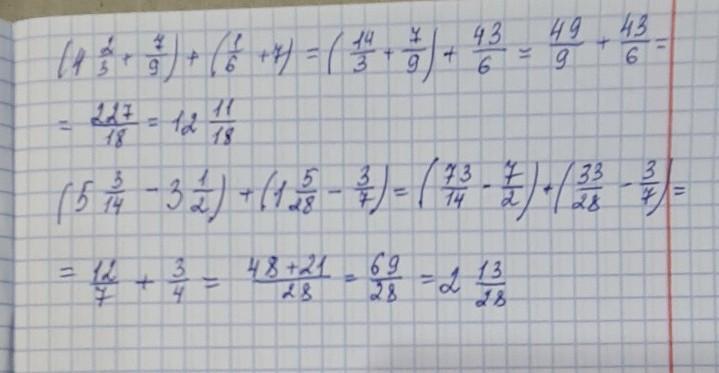 (4 2/3 + 7/9) + (1/6 + 7) = (14/3 + 7/9) + 43/6 = 49/9 + 43/6 =
= 227/18 = 12 11/18
(5 3/14 - 3 1/2) + (1 5/28 - 3/7) = (73/14 - 7/2) + (33/28 - 3/7) =
= 12/7 + 3/4 = 48+21/28 = 69/28 = 2 13/28